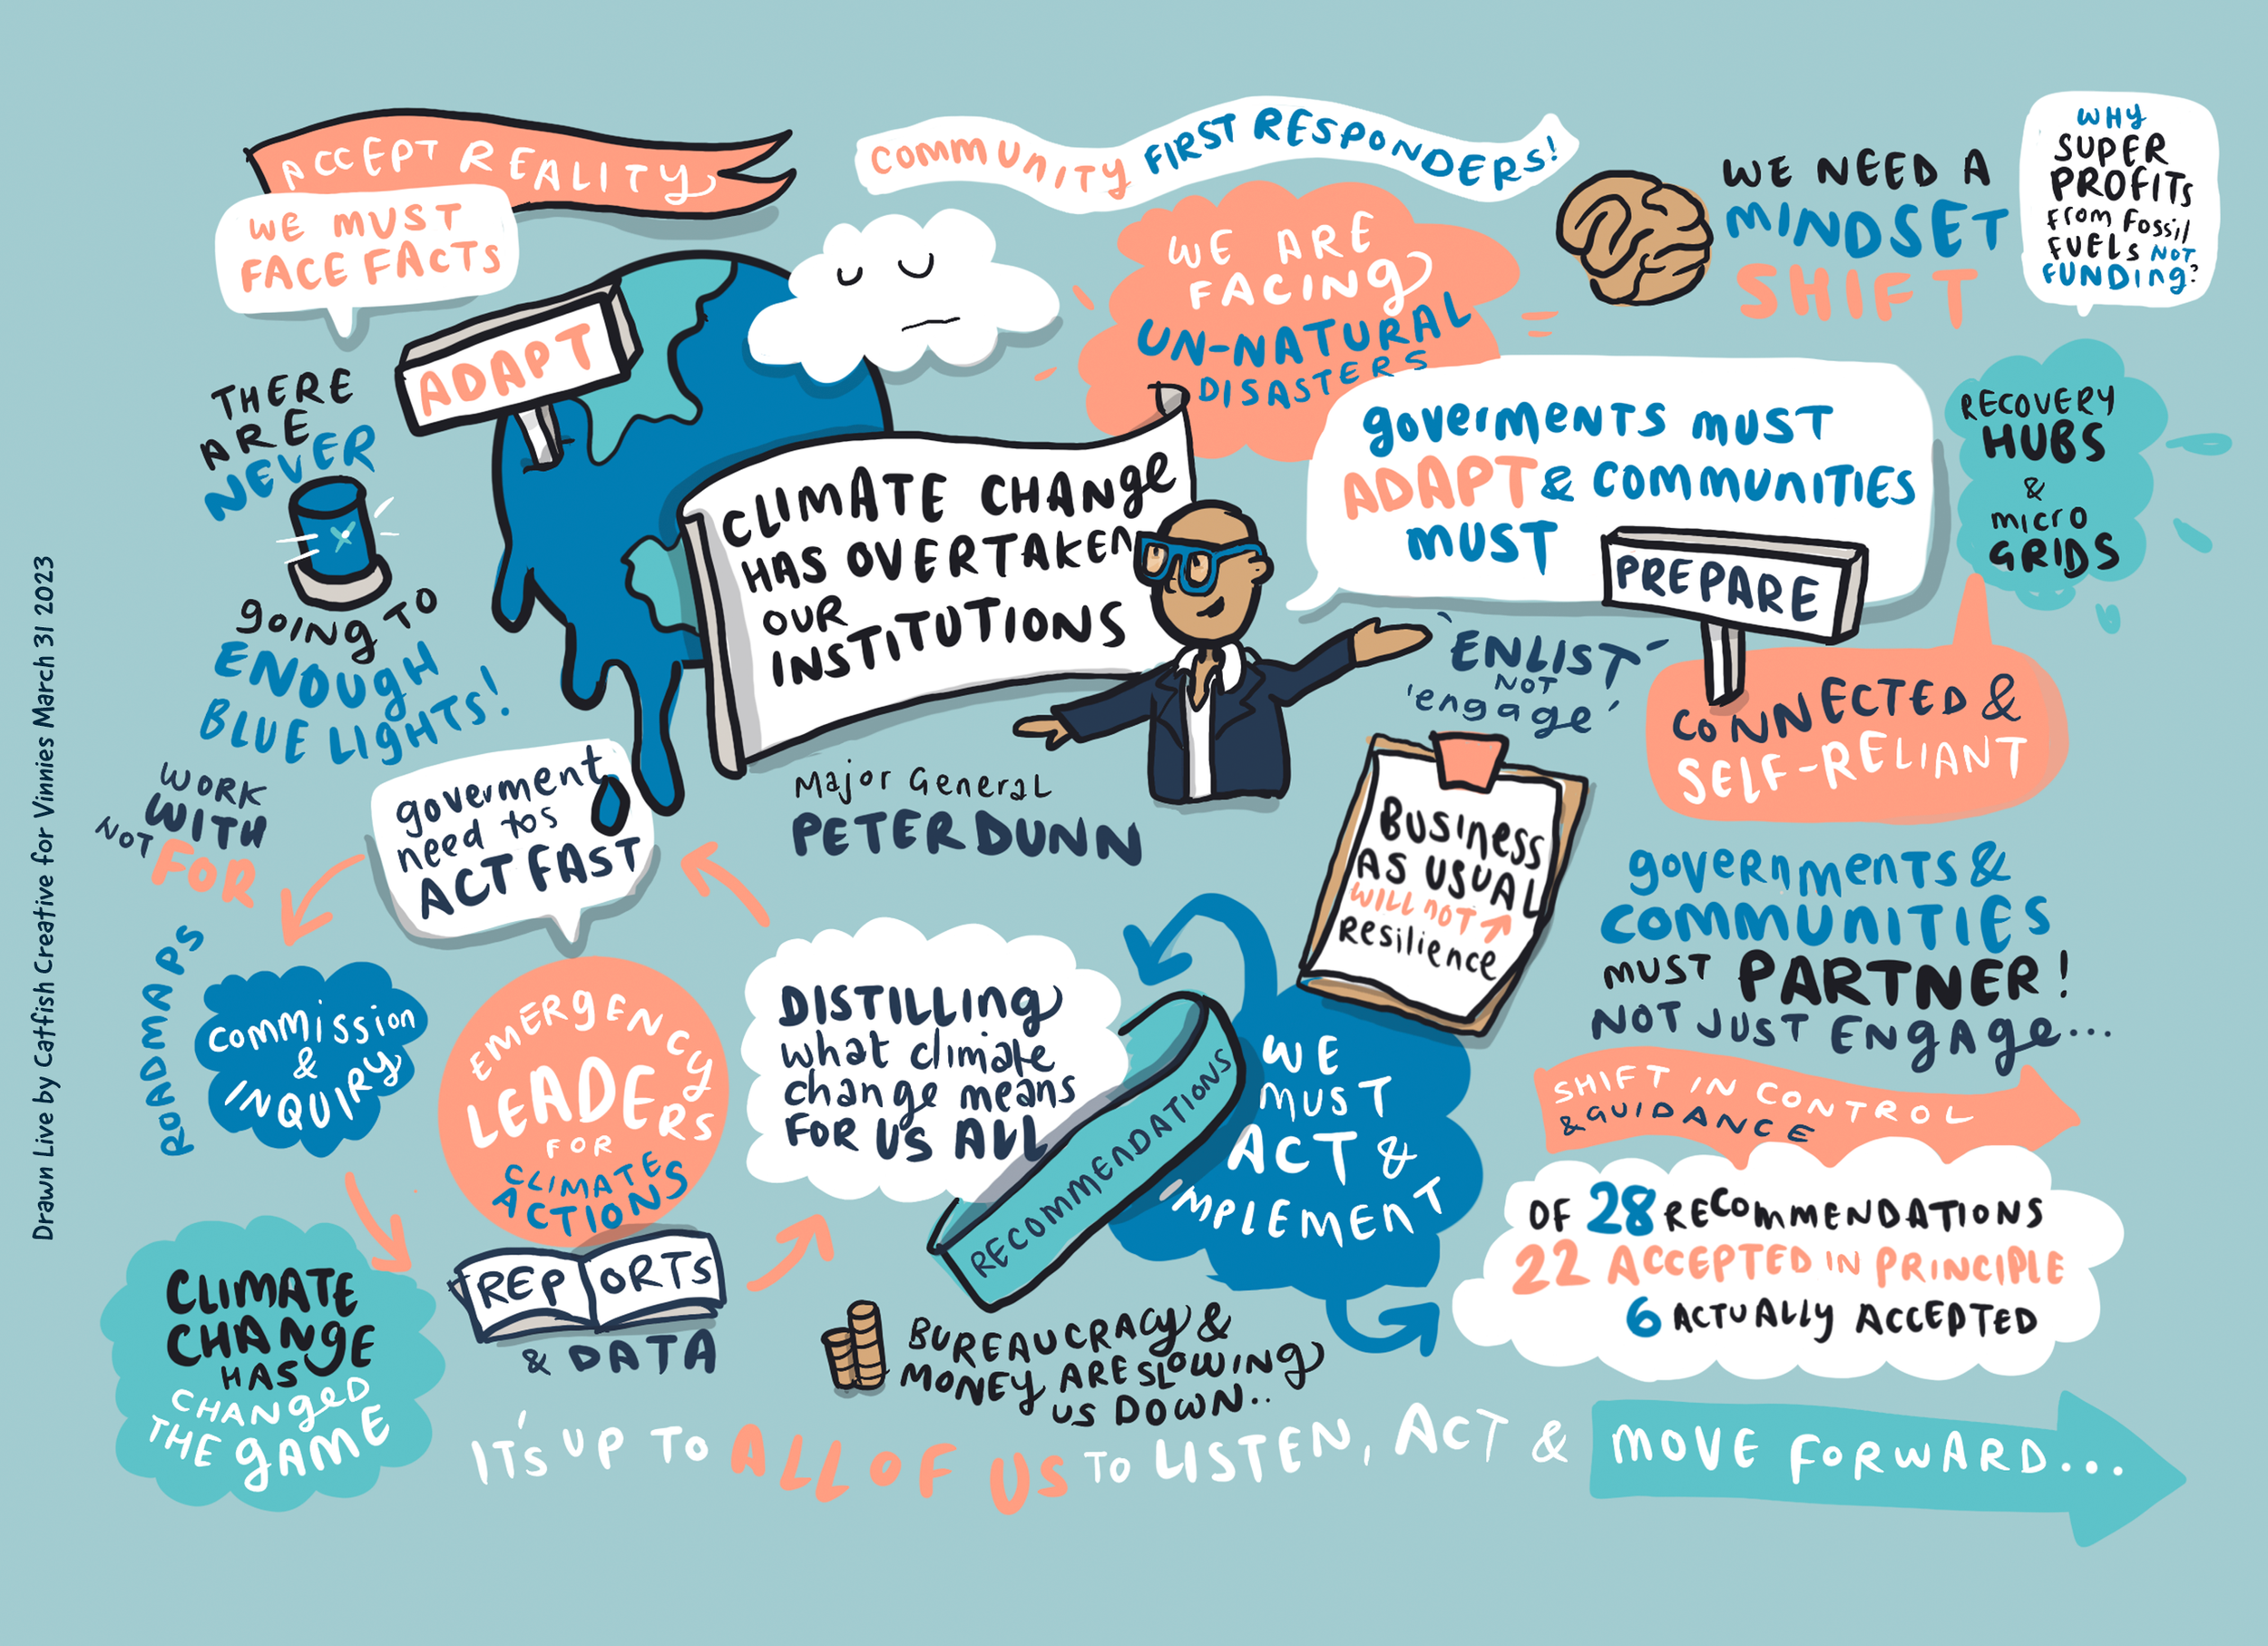 ACCEPT REALITY
WE MUST
FACE FACTS
COMMUNITY FIRST RESPONDERS!
WE ARE
FACING
UN-NATURAL
DISASTERS
WE NEED A
MINDSET
SHIFT
WHY
SUPER
PROFITS
from Fossil
FUELS NOT
FUNDING?
ADAPT
THERE
ARE
NEVER
gOING TO
ENOUgH
BLUE LIgHTS!
CLIMATE CHANge
HAS OVERTAKEN
OUR
INSTITUTIONS
goverments must
ADAPT & COMMUNITIES
MUST
PREPARE
RECOVERY
HUBS
&
micro
GRIDS
'ENLIST'
NOT
'engage'
CONNECTED &
SELF-RELIANT
Major General
PETER DUNN
WORK
WITH
NOT FOR
goverment
need tos
ACT FAST
BUSINess
AS USUAL
WILL NOT ↗
Resilience
governments &
COMMUNITIES
MUST PARTNER!
NOT JUST ENgAge...
ROADMAPS
Commission
&
INQUIRY
EMERGENCY
LEADERS
FOR
CLIMATE
ACTIONS
DISTILLINg
what climate
change means
FOR US ALL
RECOMMENDATIONS
WE
MUST
ACT &
IMPLEMENT
SHIFT IN CONTROL
& GUIDANCE
OF 28 RECOMMENDATIONS
22 ACCEPTED IN PRINCIPLE
6 ACTUALLY ACCEPTED
CLIMATE
CHANgE
HAS
CHANgeD
THE gAME
REPORTS
& DATA
BUREAUCRACY &
MONEY ARE SLOWINg
US DOWN..
IT'S UP TO ALL OF US TO LISTEN, ACT & MOVE FORWARD...
Drawn Live by Catfish Creative for Vinnies March 31 2023